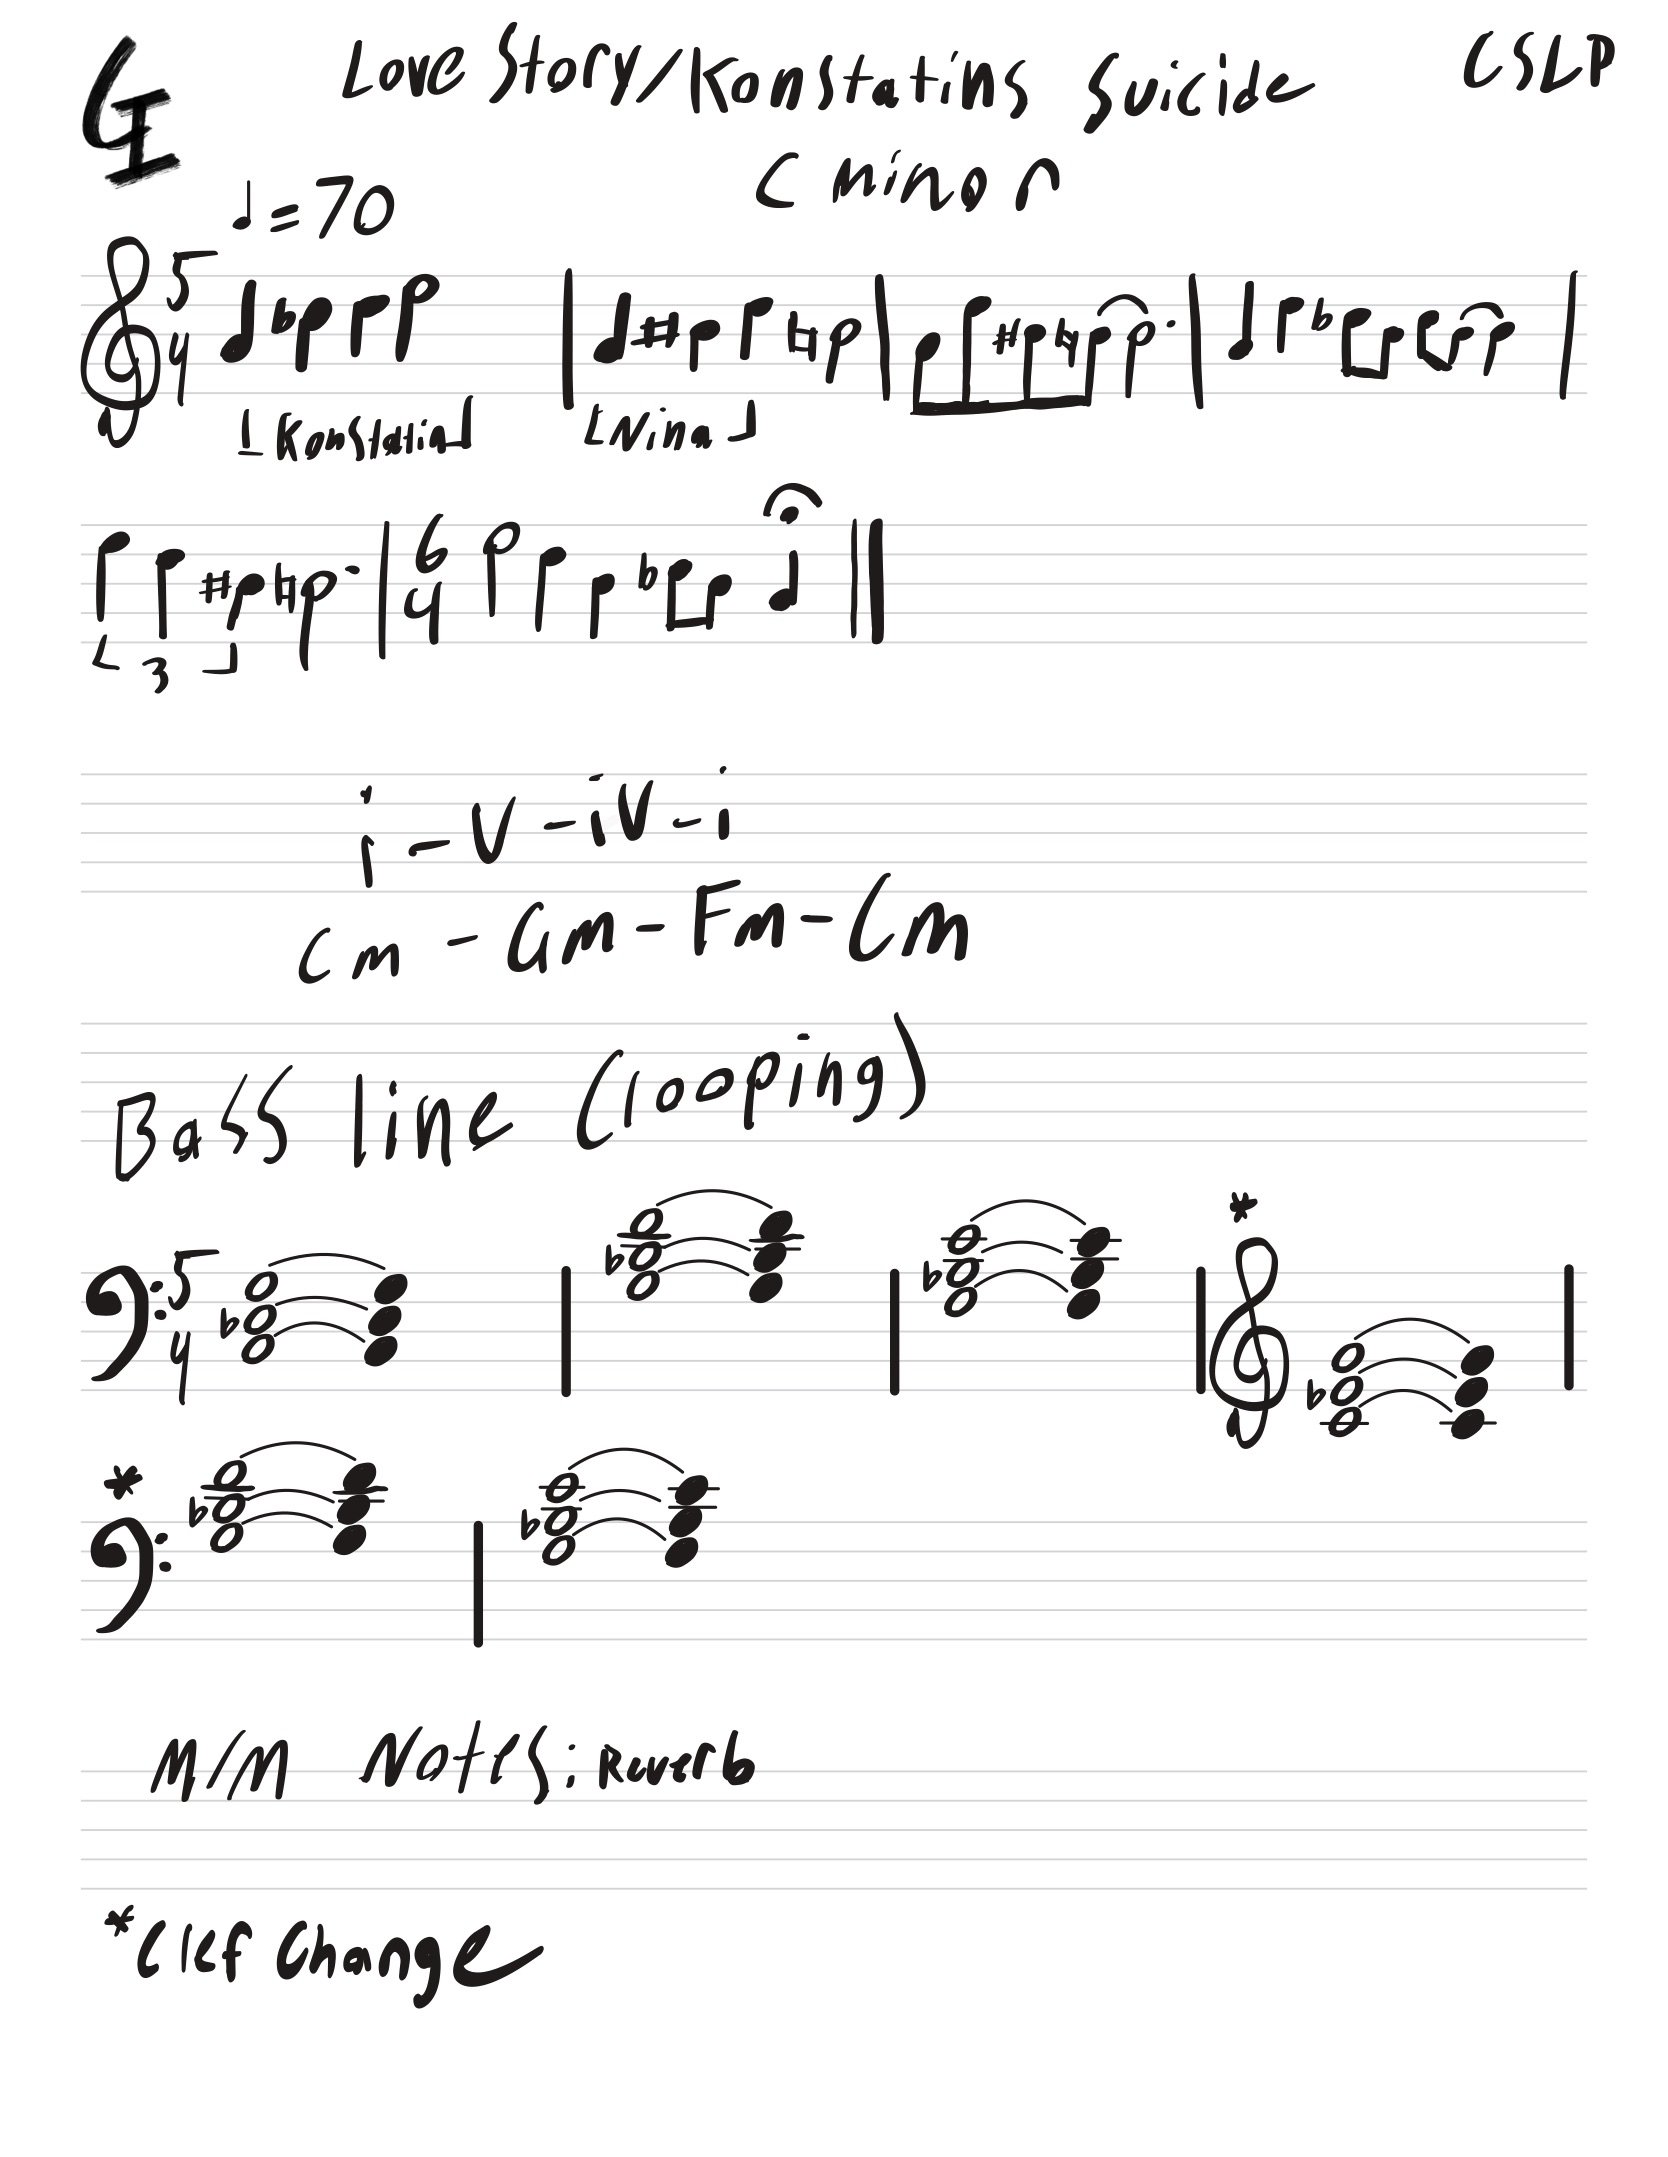 GI
Love Story/Konstatins Suicide
CSLP
C minor
♩=70
5
4
Konstatin
Nina
3
6
4
i-V-iV-i
Cm-Gm-Fm-Cm
Bass line (looping)
5
4
*
*
M/M Notes: Reverb
*Clef Change